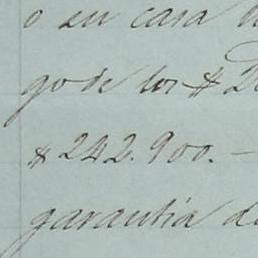 o su casa
go de los $
$ 242.900.—
garantia de